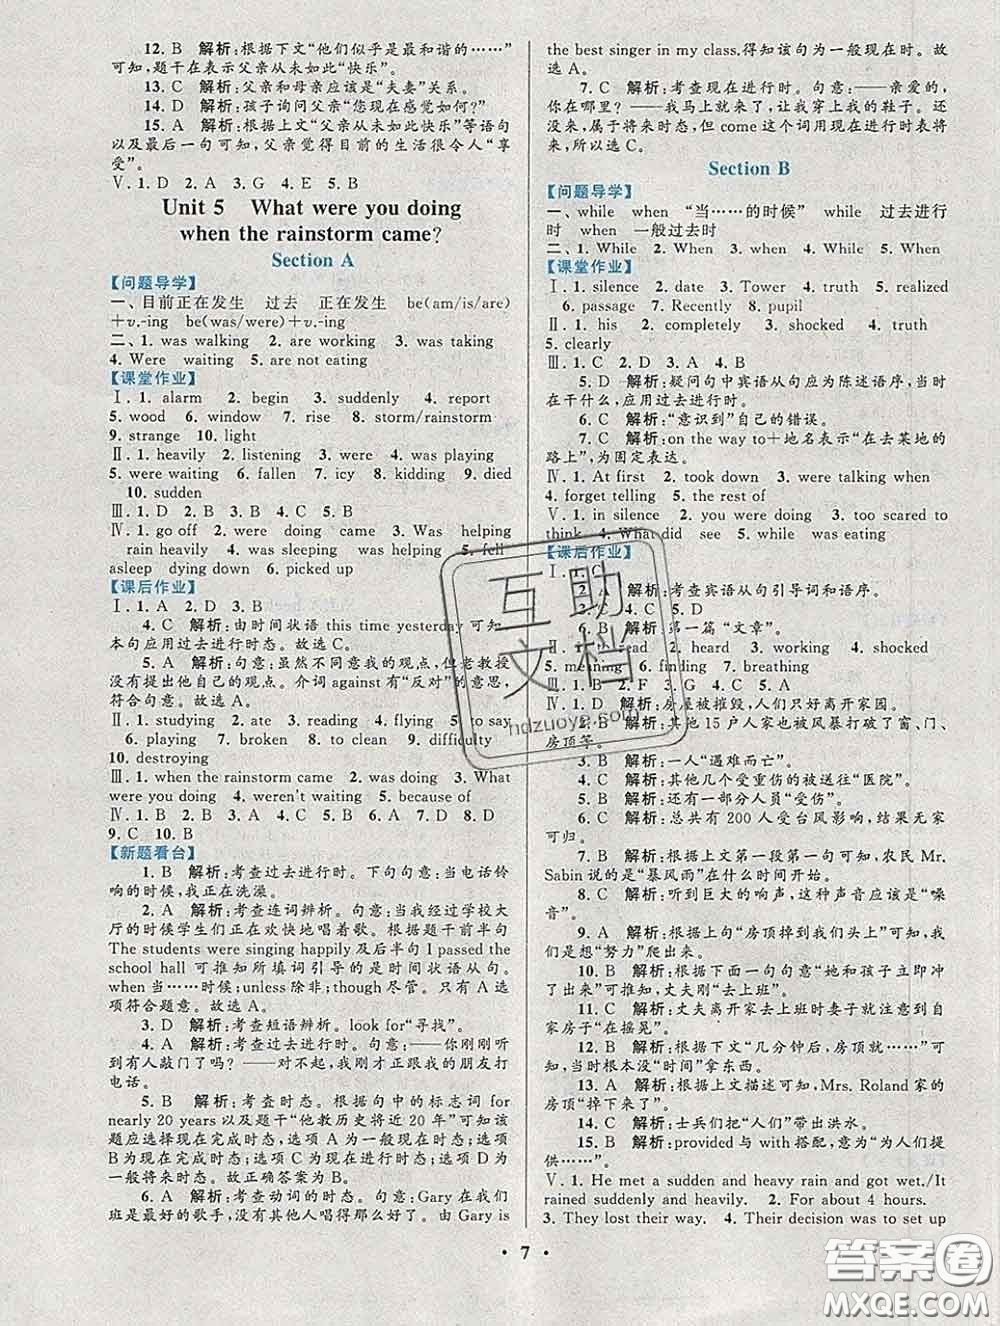 12. B 解析:根据下文“他们似乎是最和谐的……”
可知,题干在表示父亲从未如此“快乐”。
13. C 解析:父亲和母亲应该是“夫妻”关系。
14. D 解析:孩子询问父亲“您现在感觉如何?”
15. A 解析:根据上文“父亲从未如此快乐”等语句
以及最后一句可知,父亲觉得目前的生活很令人“享
受”。
Ⅴ. 1. D 2. A 3. G 4. E 5. B
Unit 5 What were you doing
when the rainstorm came?
Section A
【问题导学】
一、目前正在发生 过去 正在发生 be(am/is/are)
+v.-ing be(was/were)+v.-ing
二、1. was walking 2. are working 3. was taking
4. Were waiting 5. are not eating
【课堂作业】
Ⅰ. 1. alarm 2. begin 3. suddenly 4. report
5. wood 6. window 7. rise 8. storm/rainstorm
9. strange 10. light
Ⅱ. 1. heavily 2. listening 3. were 4. was playing
5. were waiting 6. fallen 7. icy 8. kidding 9. died
10. sudden
Ⅲ. 1. D 2. B 3. A 4. C 5. B
Ⅳ. 1. go off 2. were doing came 3. Was helping
rain heavily 4. was sleeping was helping 5. fell
asleep dying down 6. picked up
【课后作业】
Ⅰ. 1. A 2. D 3. B
4. C 解析:由时间状语 this time yesterday 可知
本句应用过去进行时态。故选C。
5. A 解析:句意:虽然不同意我的观点,但老教授
没有提出他自己的观点。介词 against 有“反对”的意思,
符合句意。故选A。
Ⅱ. 1. studying 2. ate 3. reading 4. flying 5. to say
6. playing 7. broken 8. to clean 9. difficulty
10. destroying
Ⅲ. 1. when the rainstorm came 2. was doing 3. What
were you doing 4. weren't waiting 5. because of
Ⅳ. 1. B 2. B 3. A 4. C 5. B 6. C 7. A 8. D
9. C 10. B
【新题看台】
1. B 解析:考查过去进行时。下句句意:当电话铃
响的时候,我正在洗澡。
2. A 解析:考查连词辨析。句意:当我经过学校大
厅的时候学生们正在欢快地唱着歌。根据题干前半句
The students were singing happily 及后半句 I passed the
school hall 可推知所填词引导的是时间状语从句。
when 当……时候;unless 除非;though 尽管。只有 A 选
项符合题意。故选A。
3. D 解析:考查短语辨析。look for“寻找”。
4. A 解析:考查过去进行时。句意:——你刚刚听
到有人敲门了吗?——对不起,我刚才正在和我的朋友打
电话。
5. B 解析:考查时态。根据句中的标志词 for
nearly 20 years 以及题干“他教历史将近 20 年”可知该
题应选择现在完成时态,选项A为一般现在时态,选项
B为现在完成时态,选项C为过去进行时态,选项D为一
般过去时态。故正确答案为B。
6. A 解析:考查动词的时态。句意:Gary 在我们
班是最好的歌手,没有其他人唱得那么好了。由 Gary is
the best singer in my class.得知该句为一般现在时。故
选A。
7. C 解析:考查现在进行时。句意:——亲爱的,
你在哪里?——我马上就来了,让我穿上我的鞋子。还
没来,属于将来时态,但 come 这个词用现在进行时表将
来,所以选C。
Section B
【问题导学】
一、while when “当……的时候” while 过去进行
时 when 一般过去时
二、1. While 2. When 3. when 4. While 5. When
【课堂作业】
Ⅰ. 1. silence 2. date 3. Tower 4. truth 5. realized
6. passage 7. Recently 8. pupil
Ⅱ. 1. his 2. completely 3. shocked 4. truth
5. clearly
Ⅲ. 1. C 2. D 3. A 4. B
5. D 解析:疑问句中宾语从句应为陈述语序,当时
在干什么,应用过去进行时。
6. C 解析:“意识到”自己的错误。
7. C 解析:on the way to+地名表示“在去某地的
路上”,为固定表达。
Ⅳ. 1. At first 2. took down 3. were talking when
4. forget telling 5. the rest of
Ⅴ. 1. in silence 2. you were doing 3. too scared to
think 4. What did see 5. While was watching
【课后作业】
Ⅰ. 1. C
2. A 解析:考查宾语从句引导词和语序。
3. C 4. C 5. D
6. B 解析:第一篇“文章”。
2. heard 3. working 4. shocked
5. meaning 6. finding 7. breathing
Ⅲ. 1. B 2. F 3. G 4. C 5. A
Ⅳ. 1. D 解析:房屋被摧毁,人们只好离开家园。
2. B 解析:其他 15 户人家也被风暴打破了窗、门、
房顶等。
3. B 解析:一人“遇难而亡”。
4. C 解析:其他几个受重伤的被送往“医院”。
5. B 解析:还有一部分人员“受伤”。
6. C 解析:总共有 200 人受台风影响,结果无家
可归。
7. B 解析:根据上文第一段第一句可知,农民 Mr.
Sabin 说的是“暴风雨”在什么时间开始。
8. C 解析:听到巨大的响声,这种声音应该是“噪
音”。
9. A 解析:根据上句“房顶掉到我们头上”可知,我
们是想“努力”爬出来。
10. B 解析:根据下面一句句意“她和孩子立即冲
了出来”可推知,丈夫刚刚“去上班”。
11. C 解析:丈夫离开家去上班时妻子就没有独
自家房子“在摇晃”。
12. B 解析:根据下文“几分钟后,房顶就……”可
知,当时根本没“时间”拿东西。
13. A 解析:根据上文描述可知,Mrs. Roland 家的
房顶“掉下来了”。
14. C 解析:士兵们把“人们”带出洪水。
15. B 解析:provided 与 with 搭配,意为“为人们提
供……”。
Ⅴ. 1. He met a sudden and heavy rain and got wet./It
rained suddenly and heavily. 2. For about 4 hours.
3. They lost their way. 4. Their decision was to set up
• 7 •
互助
文档
hdzuoye.com
答案圈
MXQE.COM